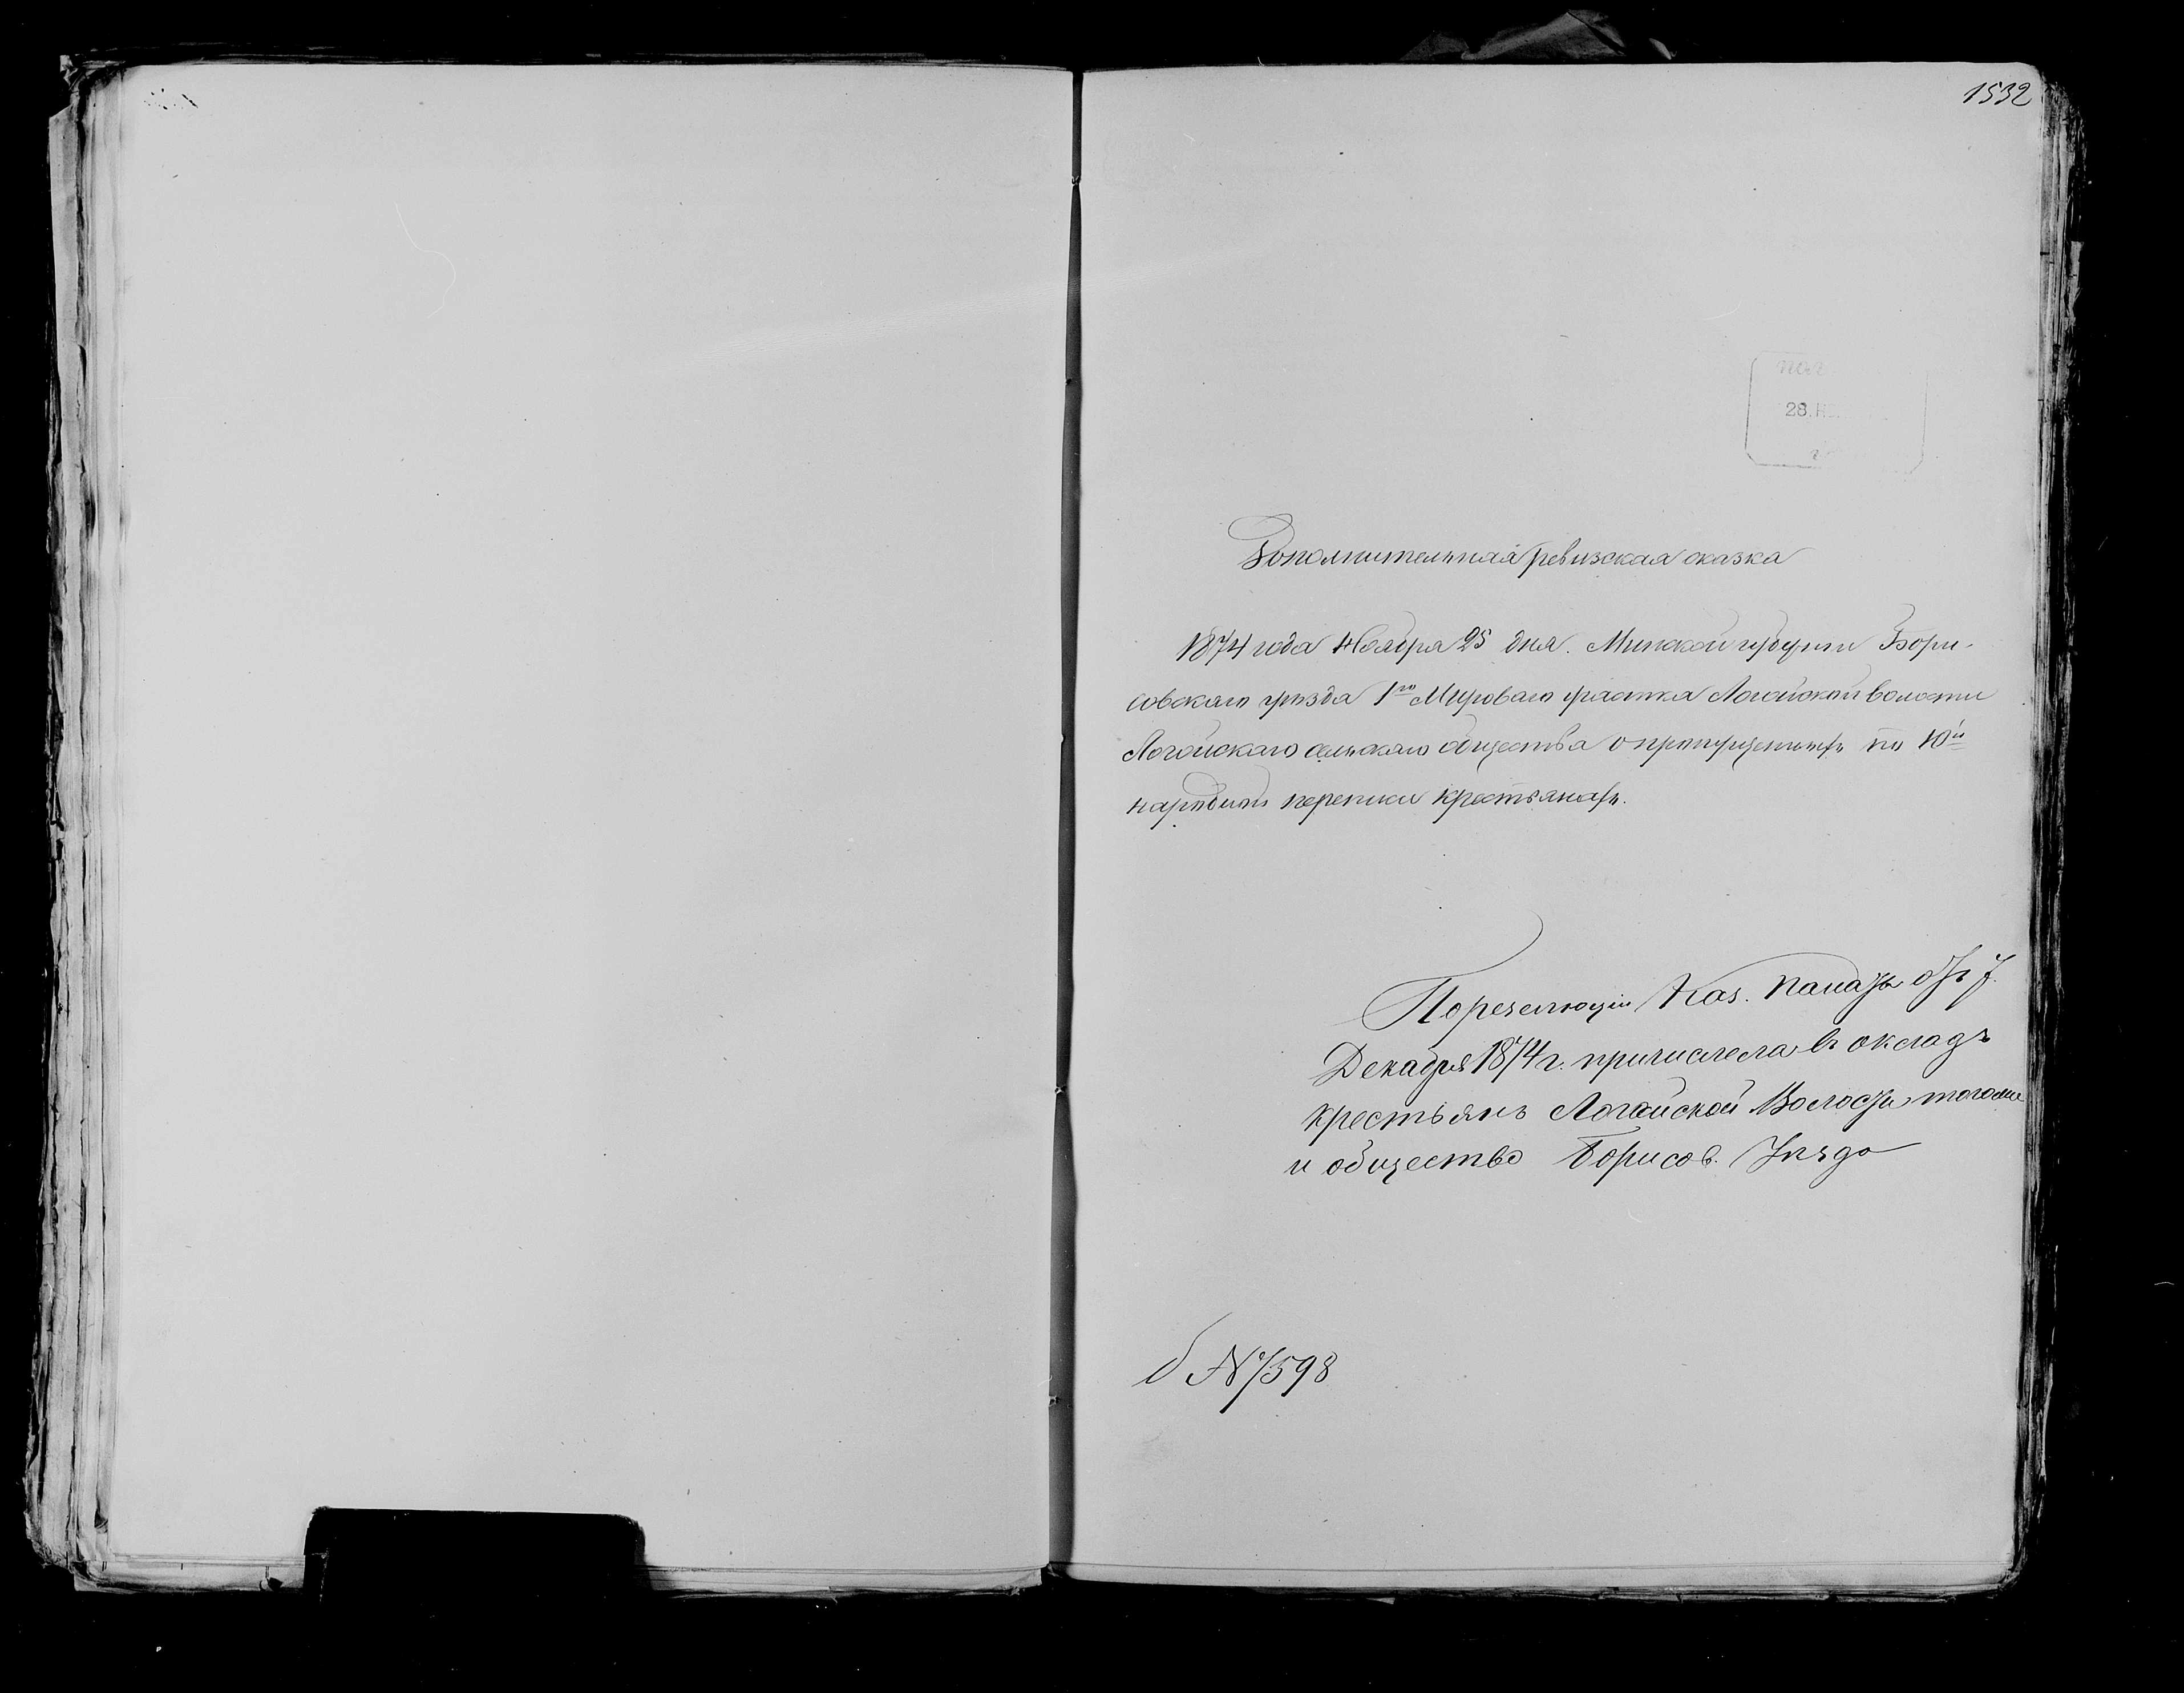 1532
28. Н
Дополнительная ревизская сказка
1874 года Ноября 25 дня. Минской губернии Бори-
совского уезда 1го Мироваго участка Логойской волости
Логойскаго сельскаго общества о пропущенныхъ по 10й
народной переписи крестьянахъ.
По резолюціи Каз. Палаты отъ 7.
Декабря 1874 г. причислена въ окладъ
крестьянъ Логойской Волости тогоже
и общество Борисов. Уезда
№ 598